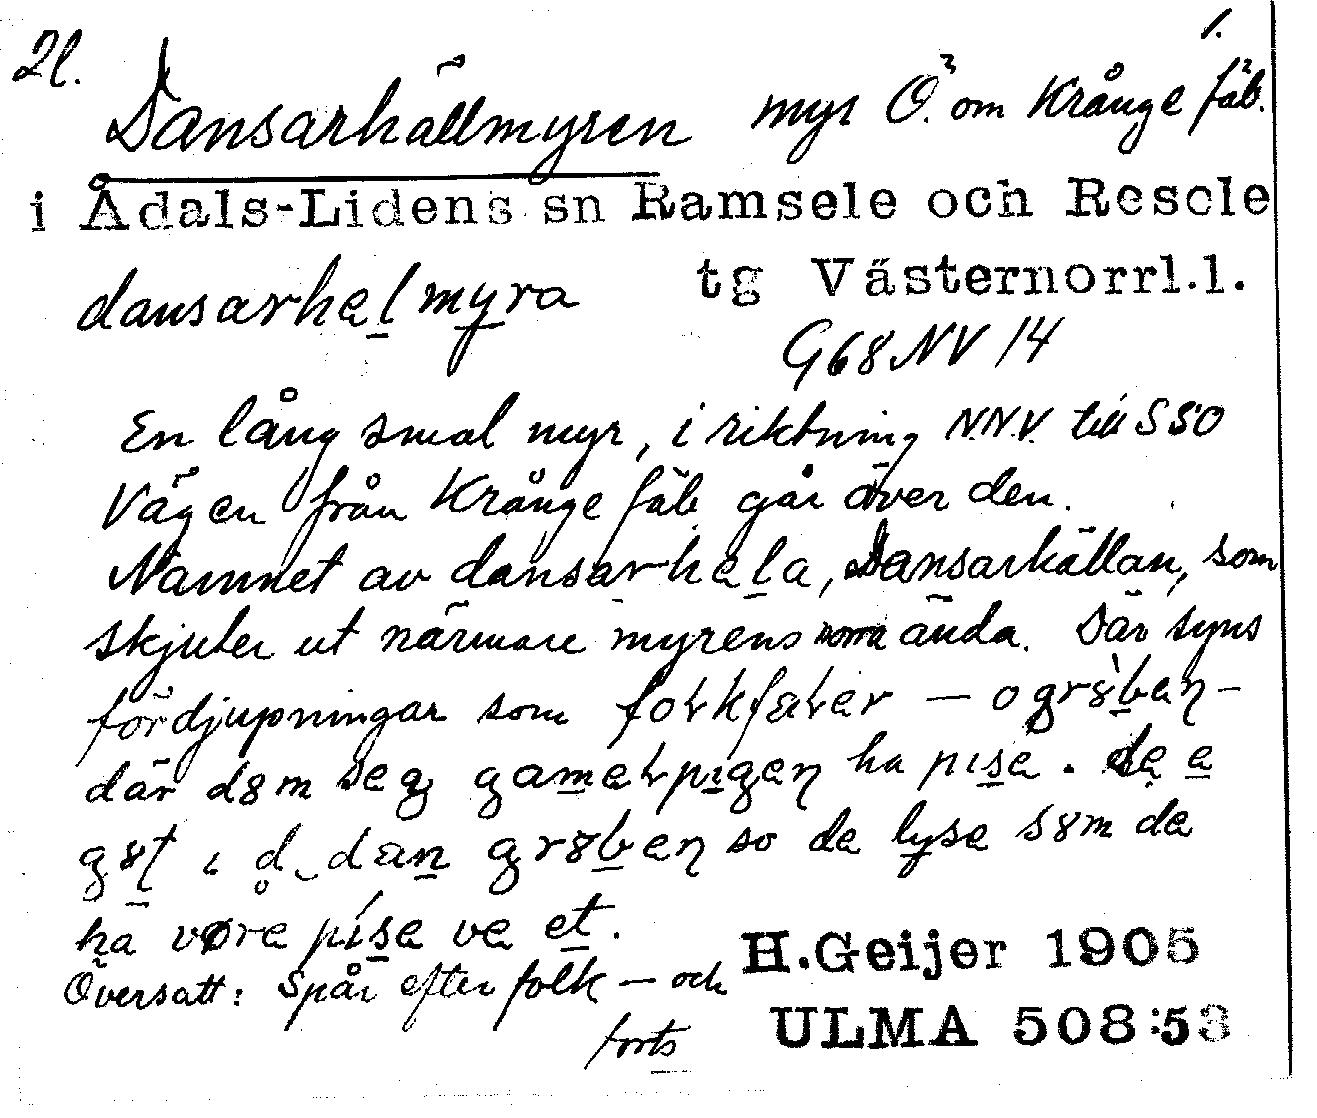 21. 1.
Dansarhällmyren myr Ö. om Krånge fäb.
i Ådals-Lidens sn Ramsele och Resele
dansarhelmyra tg Västernorrl.l.
G68 NV 14
En lång smal myr, i riktning N.N.V. till SSO
Vägen från Krånge fäb går över den.
Namnet av dansarhela, Dansarhällan, som
skjuter ut närmare myrens ända. Där syns
fördjupningar som fotkfater — o grȣben –
där dȣm seg gamelpigen ha pise. de e
gȣt i dan grȣben so de lyse sȣm de
ha vøre píse ve et.
Översatt: Spår efter folk — och
forts
H.Geijer 1905
ULMA 508:53